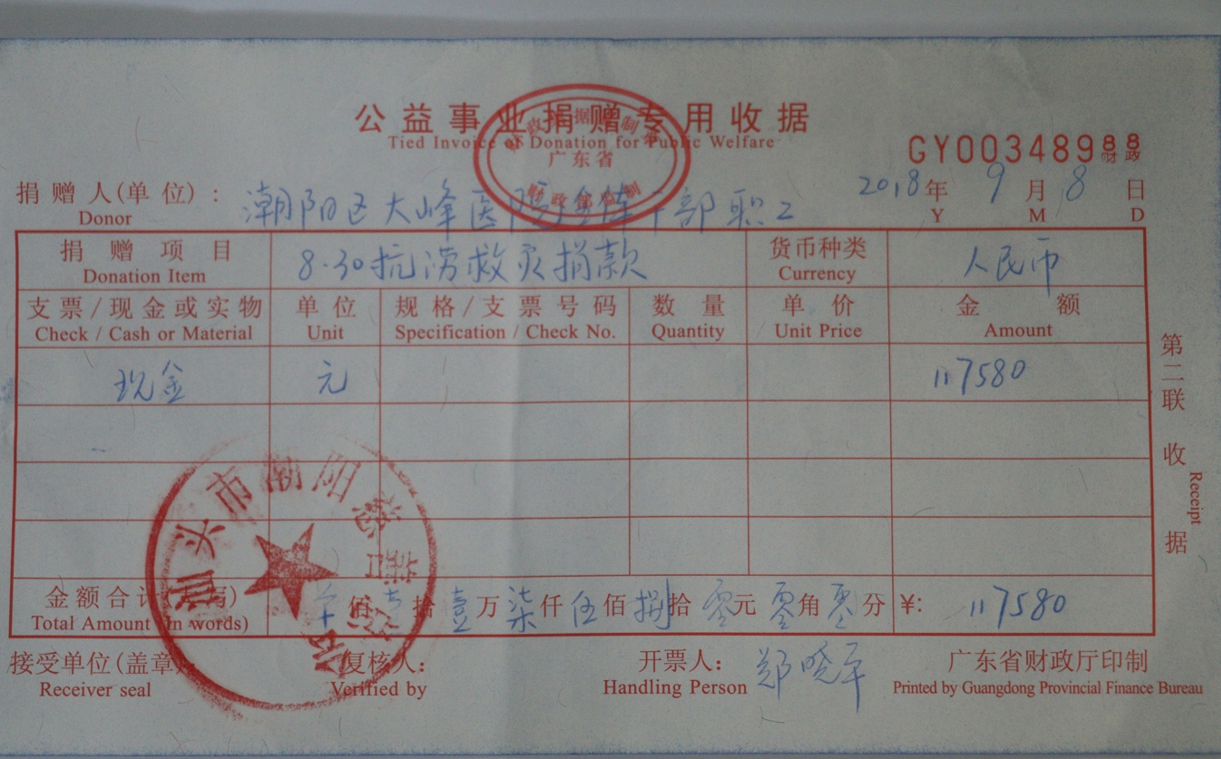 公益事业捐赠专用收据
Tied Invoice of Donation for Public Welfare
广东省
财政部监制
GY00348988 财政
捐赠人(单位): 潮阳区大峰医院全体干部职工
Donor
2018年9月8日
Y M D
捐赠项目 8.30抗涝救灾捐款 货币种类 人民币
Donation Item Currency
支票/现金或实物 单位 规格/支票号码 数量 单价 金额
Check / Cash or Material Unit Specification / Check No. Quantity Unit Price Amount
现金 元 117580
第二联 收据
Receipt
汕头市潮阳慈善总会
金额合计(大写) 仟佰壹拾壹万柒仟伍佰捌拾零元零角零分 ¥: 117580
Total Amount (In words)
接受单位(盖章) 复核人: 开票人: 郑晓平 广东省财政厅印制
Receiver seal Verified by Handling Person Printed by Guangdong Provincial Finance Bureau